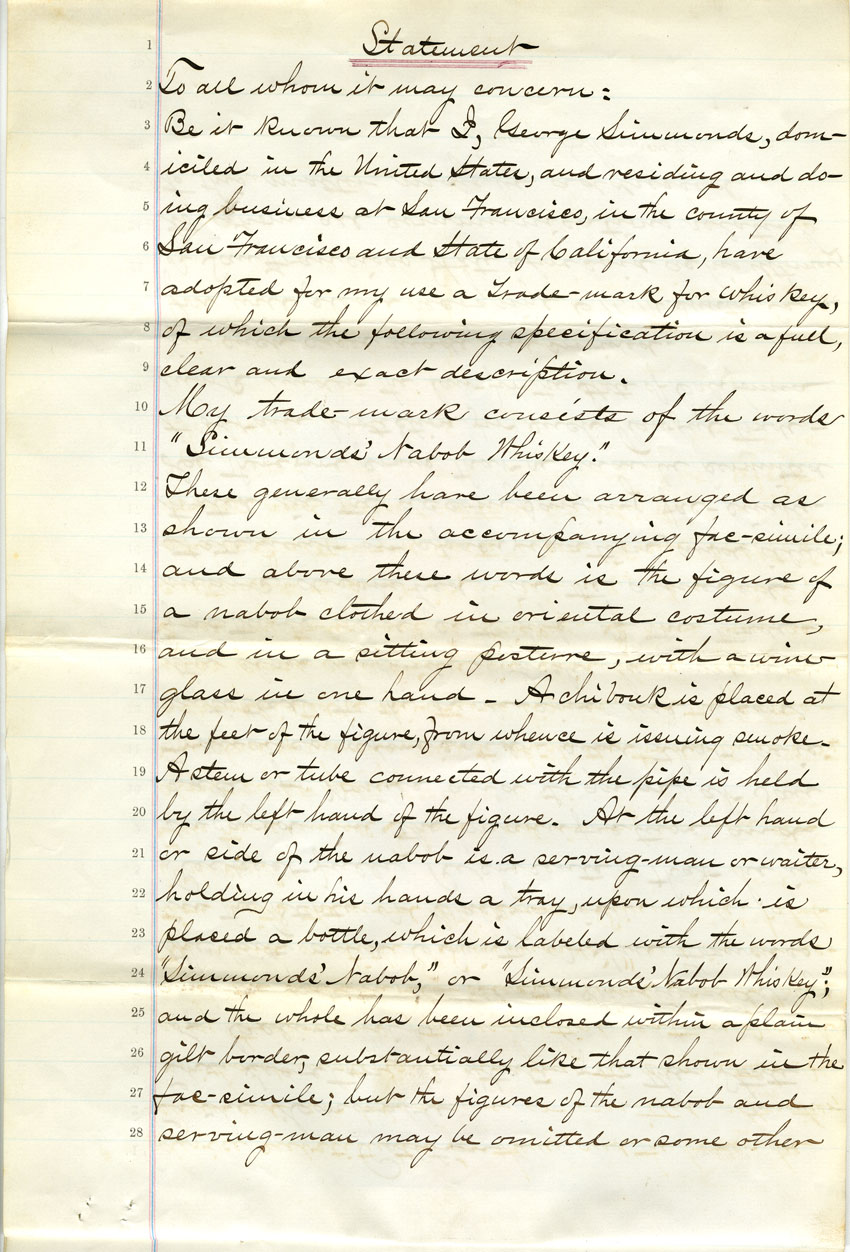 1 Statement
2 To all whom it may concern:
3 Be it known that I, George Simmonds, dom-
4 iciled in the United States, and residing and do-
5 ing business at San Francisco, in the county of
6 San Francisco and State of California, have
7 adopted for my use a Trade-mark for Whiskey,
8 of which the following specification is a full,
9 clear and exact description.
10 My trade-mark consists of the words
11 "Simmonds' Nabob Whiskey."
12 These generally have been arranged as
13 shown in the accompanying fac-simile;
14 and above these words is the figure of
15 a nabob clothed in oriental costume,
16 and in a sitting posture, with a wine
17 glass in one hand - A chibouk is placed at
18 the feet of the figure, from whence is issuing smoke.
19 A stem or tube connected with the pipe is held
20 by the left hand of the figure. At the left hand
21 or side of the nabob is a serving-man or waiter,
22 holding in his hands a tray, upon which is
23 placed a bottle, which is labeled with the words
24 "Simmonds' Nabob," or "Simmonds' Nabob Whiskey";
25 and the whole has been inclosed within a plain
26 gilt border, substantially like that shown in the
27 fac-simile; but the figures of the nabob and
28 serving-man may be omitted or some other